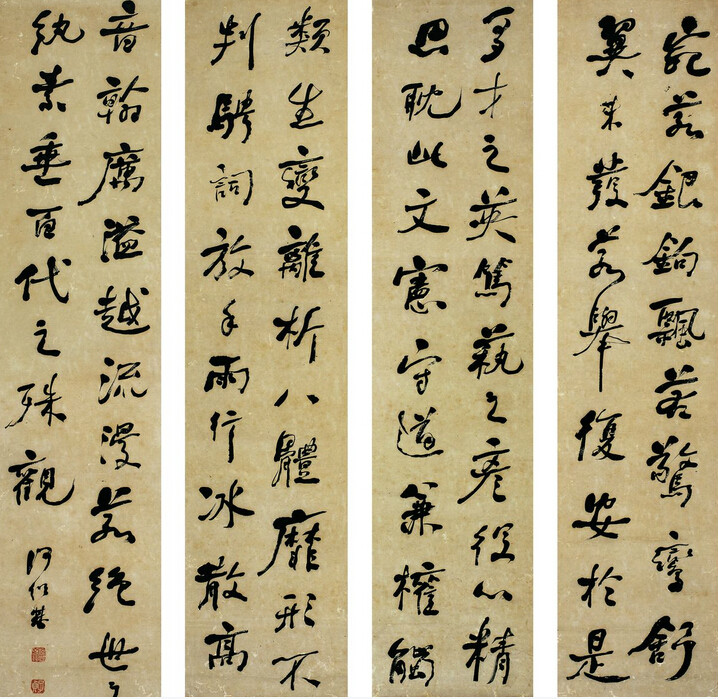 宛若銀鉤飄若驚鸞舒
翼未發若舉復安於是
多才之英篤蓺之彥役心精
思耽此文憲守道兼權觸
類生變離析八體靡形不
判騁詞放手雨行冰散高
音翰厲溢越流漫若絕世之
紈素垂百代之殊觀
何紹基